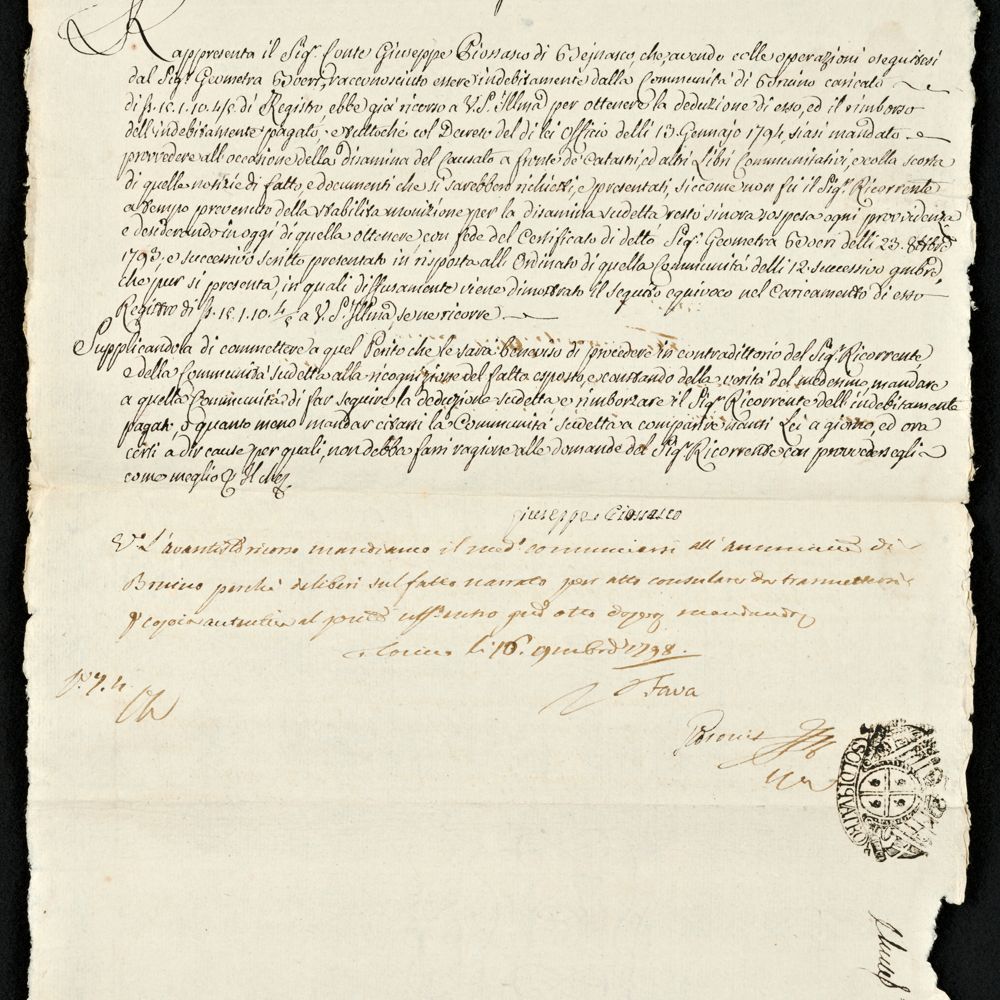 Rappresenta il Sig.r Conte Giuseppe Piossasco di Beinasco che, avendo colle operazioni eseguitesi
dal Sig.r Geometra Boveri, racconosciuto essere indebitamente dalla Communità di Bruino caricato
di # 15.1.10.4/5 di Registro, ebbe già ricorso a V.S. Illma per ottenere la deduzione di esso, ed il rimborso
dell'indebitamente pagato, e tuttochè col Decreto del di lei Officio delli 13. Gennajo 1794, siasi mandato
provvedere all'occasione della disamina del Causato a fronte de' Catastri, ed altri Libri Communitativi, e colla scorta
di quelle notizie di fatto, e documenti che si sarebbero richiesti, e presentati, siccome non fù il Sig.r Ricorrente
a tempo prevenuto della stabilita monizione per la disamina sudetta restò sinora sospesa ogni providenza
e desiderando in oggi di quella ottenere con fede del Certificato di detto Sig.r Geometra Boveri delli 23. 8bre
1793, e successivo scritto presentato in risposta all'Ordinato di quella Communità delli 12. successivo 9mbre,
che pur si presenta, in quali diffusamente viene dimostrato il seguito equivoco nel caricamento di esso
Registro di # 15.1.10.4/5 a V.S. Illma, se ne ricorre.
Supplicandola di commettere a quel Perito che le sarà beneviso di procedere in contradittorio del Sig.r Ricorrente
e della Communità sudetta alla ricognizione del fatto esposto, e constando della verità del medesimo, mandare
a quella Communità di far seguire la deduzione sudetta, e rimborzare il Sig.r Ricorrente dell'indebitamente
pagato, o quanto meno mandar citarsi la Communità sudetta a comparire nanti Lei a giorno, ed ora
certi a dir cause per quali, non debba farsi ragione alle domande del Sig.r Ricorrente con provvedersegli
come meglio
Giuseppe Piossasco
V.o L'avantisto ricorso mandiamo il med.o communicarsi all'Amministr.e di
Bruino perchè deliberi sul fatto narrato per atto consulare da trasmettersi
copia autentica al uff.o nostro mandando
Torino li 16. 9mbre 1798.
Fava
SOLDI QVATRO